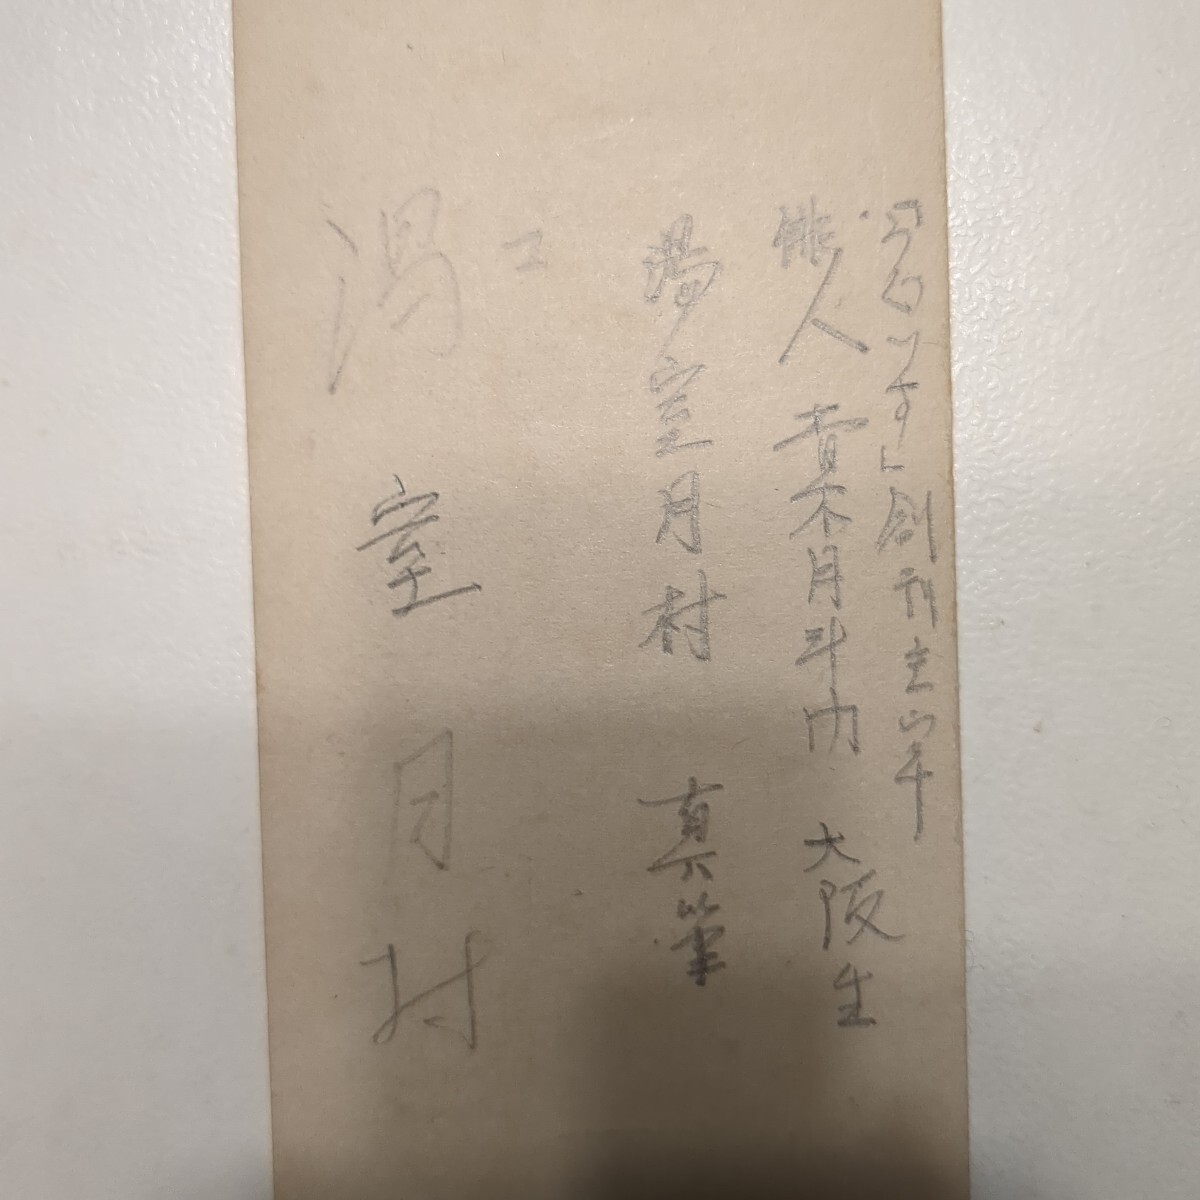 「うぐいす」創刊主宰
俳人 青木月斗門 大阪生
湯室月村 真筆
湯室月村